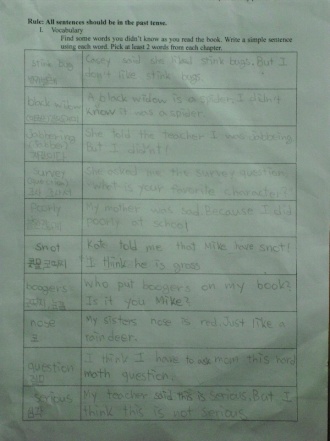 Rule: All sentences should be in the past tense.
1. Vocabulary
Find some words you didn't know as you read the book. Write a simple sentence
using each word. Pick at least 2 words from each chapter.
stink bug
Casey said she liked stink bugs. But I
don't like stink bugs.
black widow
A black widow is a spider. I didn't
know it was a spider.
Jabbering
She told the teacher I was jabbering
But I didn't!
survey
She asked me the survey question
"what is your favorite character?"
Poorly
My mother was sad. Because I did
poorly at school
snot
Kate told me that Mike love snot!
I think he is gross
boogers
who put boogers on my book?
Is it you Mike?
nose
코
My sisters nose is red. Just like a
rain deer.
question
I think I have to mean this hard
math question.
serious
My teacher said this is serious. But I
think this is not serious